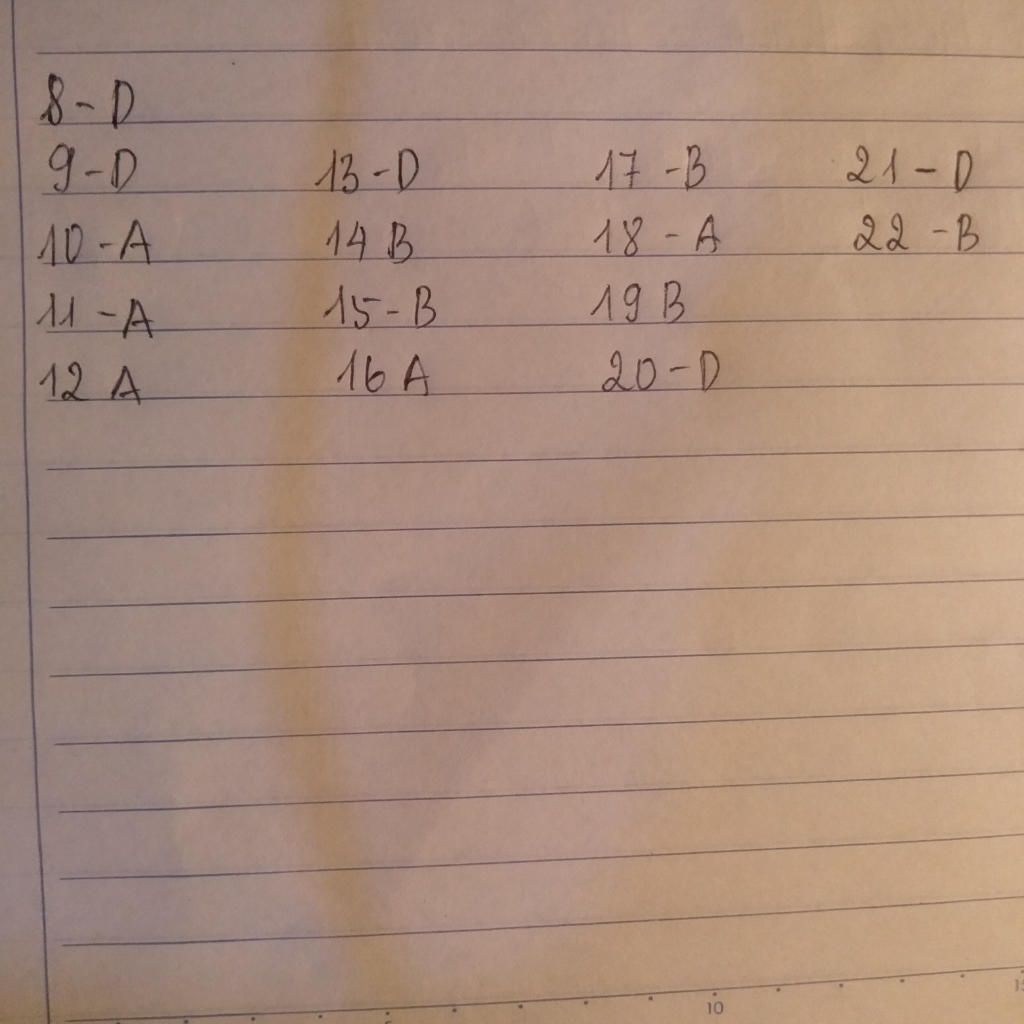 8-D
9-D 13-D 17-B 21-D
10-A 14 B 18-A 22-B
11-A 15-B 19 B
12 A 16 A 20-D
10